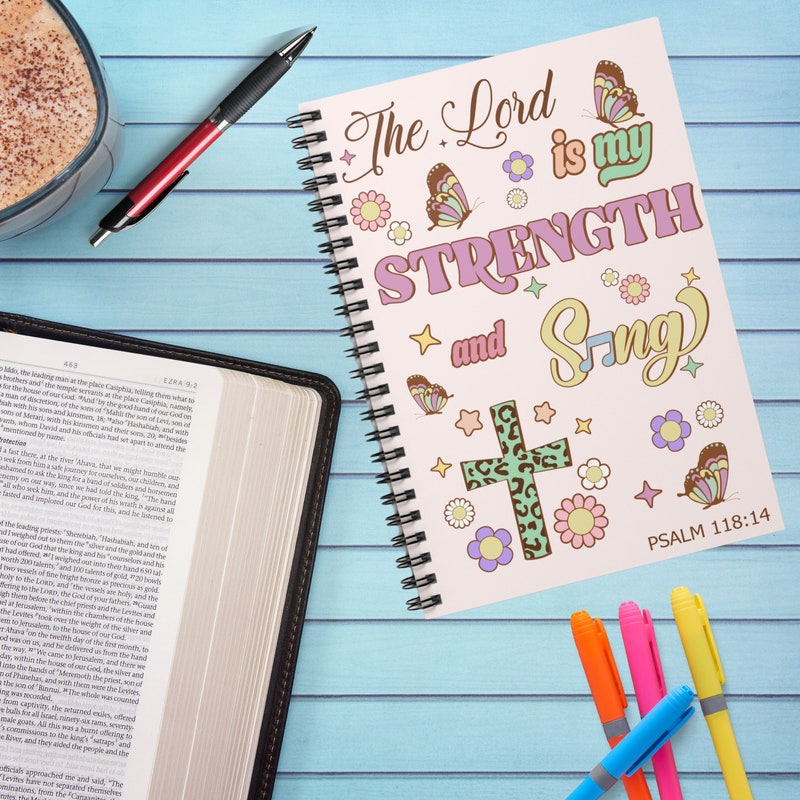 The Lord
is my
STRENGTH
and Song
PSALM 118:14
463
EZRA 9:2
Iddo, the leading man at the place Casiphia, telling them to
brothers and the temple servants at the place Casiphia, namely,
for the house of our God. 18And by the good hand of our God on
a man of discretion, of the sons of Mahli the son of Levi, son of
sons and kinsmen, 18; 19also Hashabiah, and with
sons of Merari, with his kinsmen and their sons, 20; 20besides
servants, whom David and his officials had set apart to attend the
mentioned by name.
Protection
a fast there, at the river Ahava, that we might humble our-
seek from him a safe journey for ourselves, our children, and
ashamed to ask the king for a band of soldiers and horsemen
enemy on our way, since we had told the king, "The hand
all who seek him, and the power of his wrath is against all
fasted and implored our God for this, and he listened to
of the leading priests: Sherebiah, Hashabiah, and ten of
and I weighed out to them the silver and the gold and the
house of our God that the king and his counselors and his
had offered. 26I weighed out into their hand 650 tal-
worth 200 talents, and 100 talents of gold, 27 20 bowls
two vessels of fine bright bronze as precious as gold.
holy to the LORD, and the vessels are holy, and the
offering to the LORD, the God of your fathers. 29Guard
them before the chief priests and the Levites and
at Jerusalem, within the chambers of the house
Levites took over the weight of the silver and
to Jerusalem, to the house of our God.
Ahava on the twelfth day of the first month, to
God was on us, and he delivered us from the hand
the way. 32We came to Jerusalem, and there we
day, within the house of our God, the silver and
into the hands of Meremoth the priest, son of
of Phinehas, and with them were the Levites,
the son of Binnui. 34The whole was counted
was recorded.
from captivity, the returned exiles, offered
bulls for all Israel, ninety-six rams, seventy-
male goats. All this was a burnt offering to
commissions to the king's satraps and
River, and they aided the people and the
officials approached me and said, "The
Levites have not separated themselves